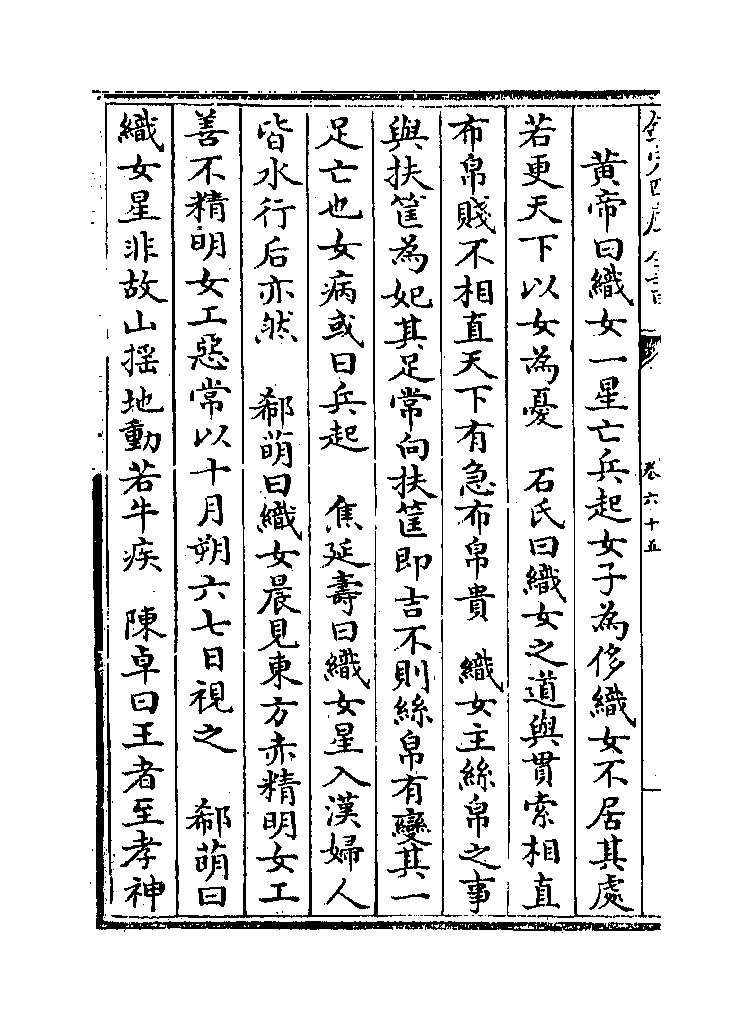 黄帝曰織女一星亡兵起女子為侈織女不居其處
若更天下以女為憂　石氏曰織女之道與貫索相直
布帛賤不相直天下有急布帛貴　織女主絲帛之事
與扶筐為妃其足常向扶筐即吉不則絲帛有變其一
足亡也女病或曰兵起　焦延壽曰織女星入漢婦人
皆水行后亦然　郗萌曰織女晨見東方赤精明女工
善不精明女工惡常以十月朔六七日視之　郗萌曰
織女星非故山摇地動若牛疾　陳卓曰王者至孝神
卷六十五